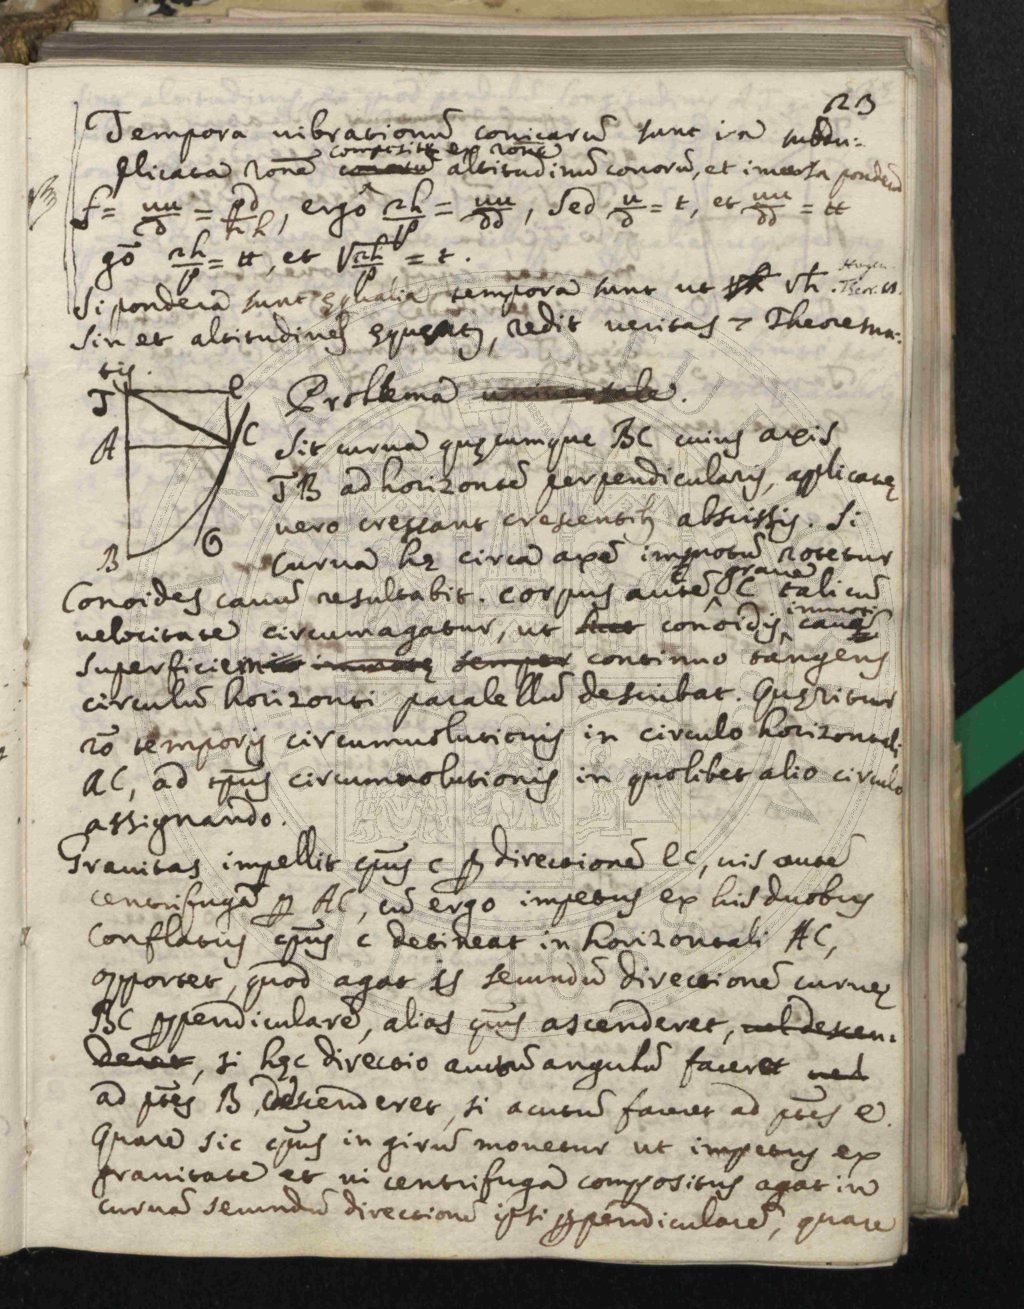 23
Tempora vibrationū conicarū sunt in subdu:
plicata ronē composita ex ronē altitudinū conorū, et inversa ponderū
f = uu/d = pd/hh, ergô rh/p = uu/dd, sed u/d = t, et uu/dd = tt
gō rh/p = tt, et √rh/p = t.
Si pondera sunt ęqualia tempora sunt ut √h. Hugen. Theor.
Sin et altitudines ęquentr, redit veritas 7 Theorema:
tis.
T e
A C
B G
Problema universale.
Sit curva quęcumque BC cuius axis
TB ad horizontē perpendicularis, applicatę
vero crescant crescentib, abscissis. Si
curva hęc circa axē immotū rotetur
Conoides cavū resultabit. corpus autē grave C tali cū
velocitate circumagatur, ut conôidis immoti cavā
superficiem continuo tangens
circulū horizonti paralellū describat. Quęritur
rō temporis circumvolutionis in circulo horizontali
AC, ad tpus circumvolutionis in quolibet alio circulo
assignando.
Gravitas impellit cpus C p directionē eC, vis autē
centrifuga p AC, cū ergo impetus ex his duobus
Conflatus cpus C detineat in horizontali AC,
opportet, quod agat is secundū directionē curvę
BC ppendicularē, alias cpus ascenderet, vel descen:
deret, si hęc directio acutū angulū faceret vel
ad ptes B, descenderet, si acutū faceret ad ptes e.
Quare sic cpus in girū movetur ut impetus ex
gravitate et vi centrifuga compositus agat in
curvā secundū directionē ipsi ppendicularē, quare